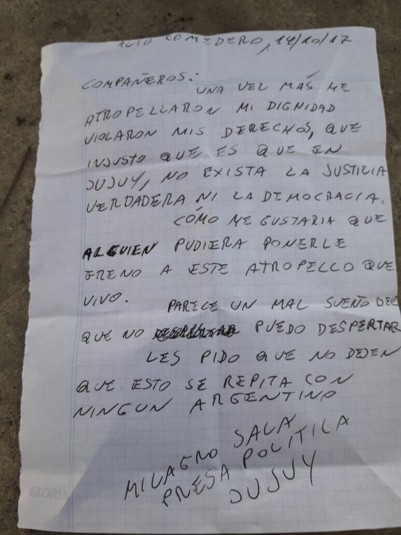 ALTO COMEDERO, 14/10/17
COMPAÑEROS:
UNA VEZ MÁS ME
ATROPELLARON MI DIGNIDAD
VIOLARON MIS DERECHOS, QUE
INJUSTO QUE ES QUE EN
JUJUY, NO EXISTA LA JUSTICIA
VERDADERA NI LA DEMOCRACIA.
CÓMO ME GUSTARIA QUE
ALGUIEN PUDIERA PONERLE
FRENO A ESTE ATROPELLO QUE
VIVO.
PARECE UN MAL SUEÑO DEL
QUE NO PUEDO DESPERTAR
LES PIDO QUE NO DEJEN
QUE ESTO SE REPITA CON
NINGUN ARGENTINO
MILAGRO SALA
PRESA POLITICA
JUJUY